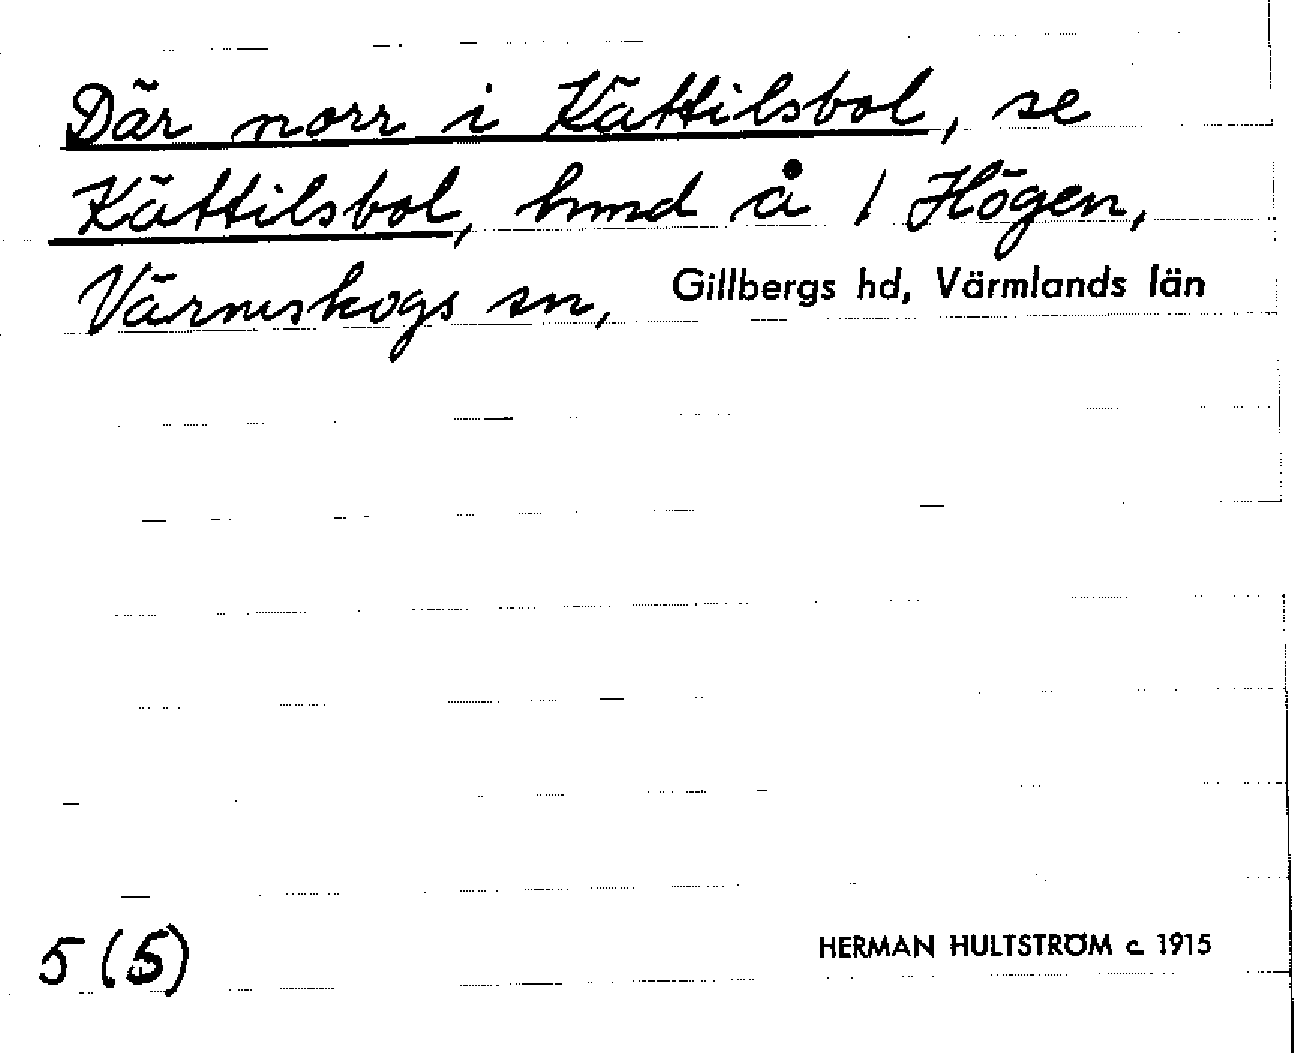 Där norr i Kättilsbol, se
Kättilsbol, hmd å 1 Högen,
Värmskogs sn, Gillbergs hd, Värmlands län
5 (5)
HERMAN HULTSTRÖM c. 1915